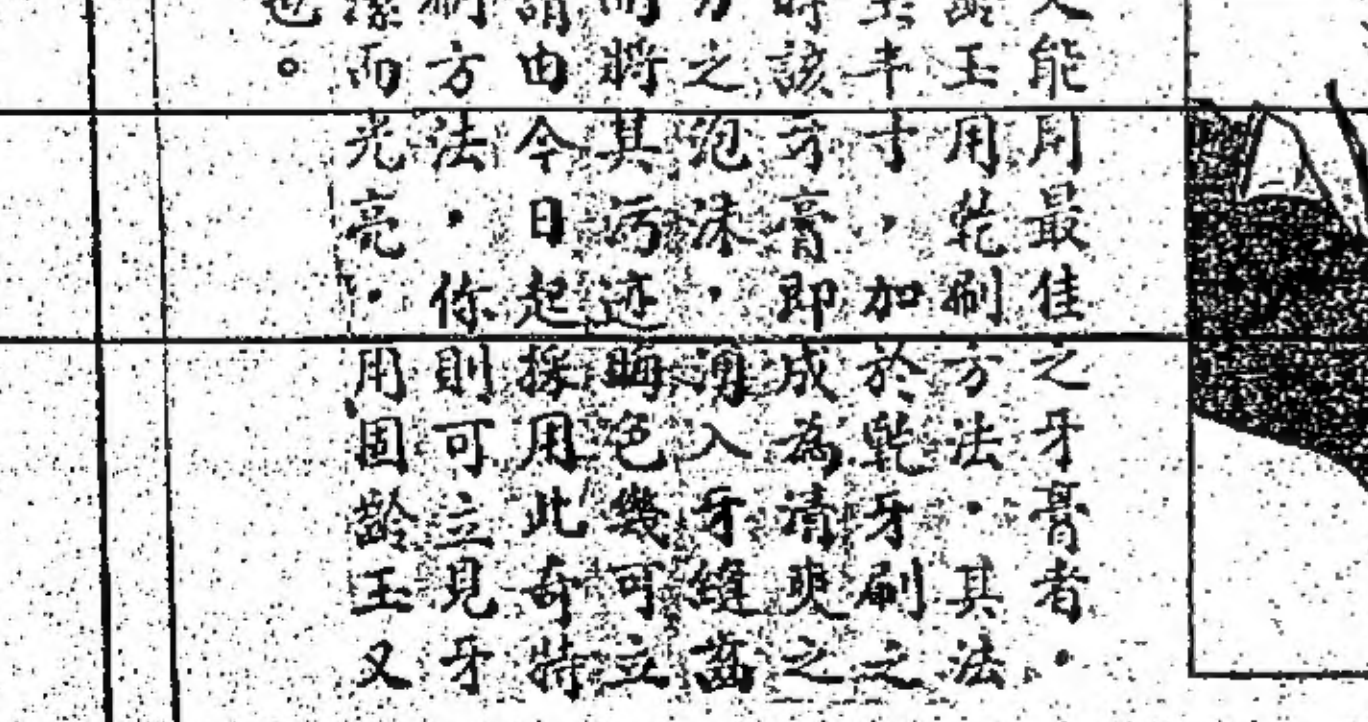 能用最佳之牙膏者·
玉用乾刷方法·其法
半寸,加於乾牙刷之
時該牙膏即成為清爽之
之泡沫·湧入牙縫齒
而將其污迹晦色幾可立
謂由今日起採用此奇特
刷方法·你則可立見牙
而光亮·用固齡玉又
也。